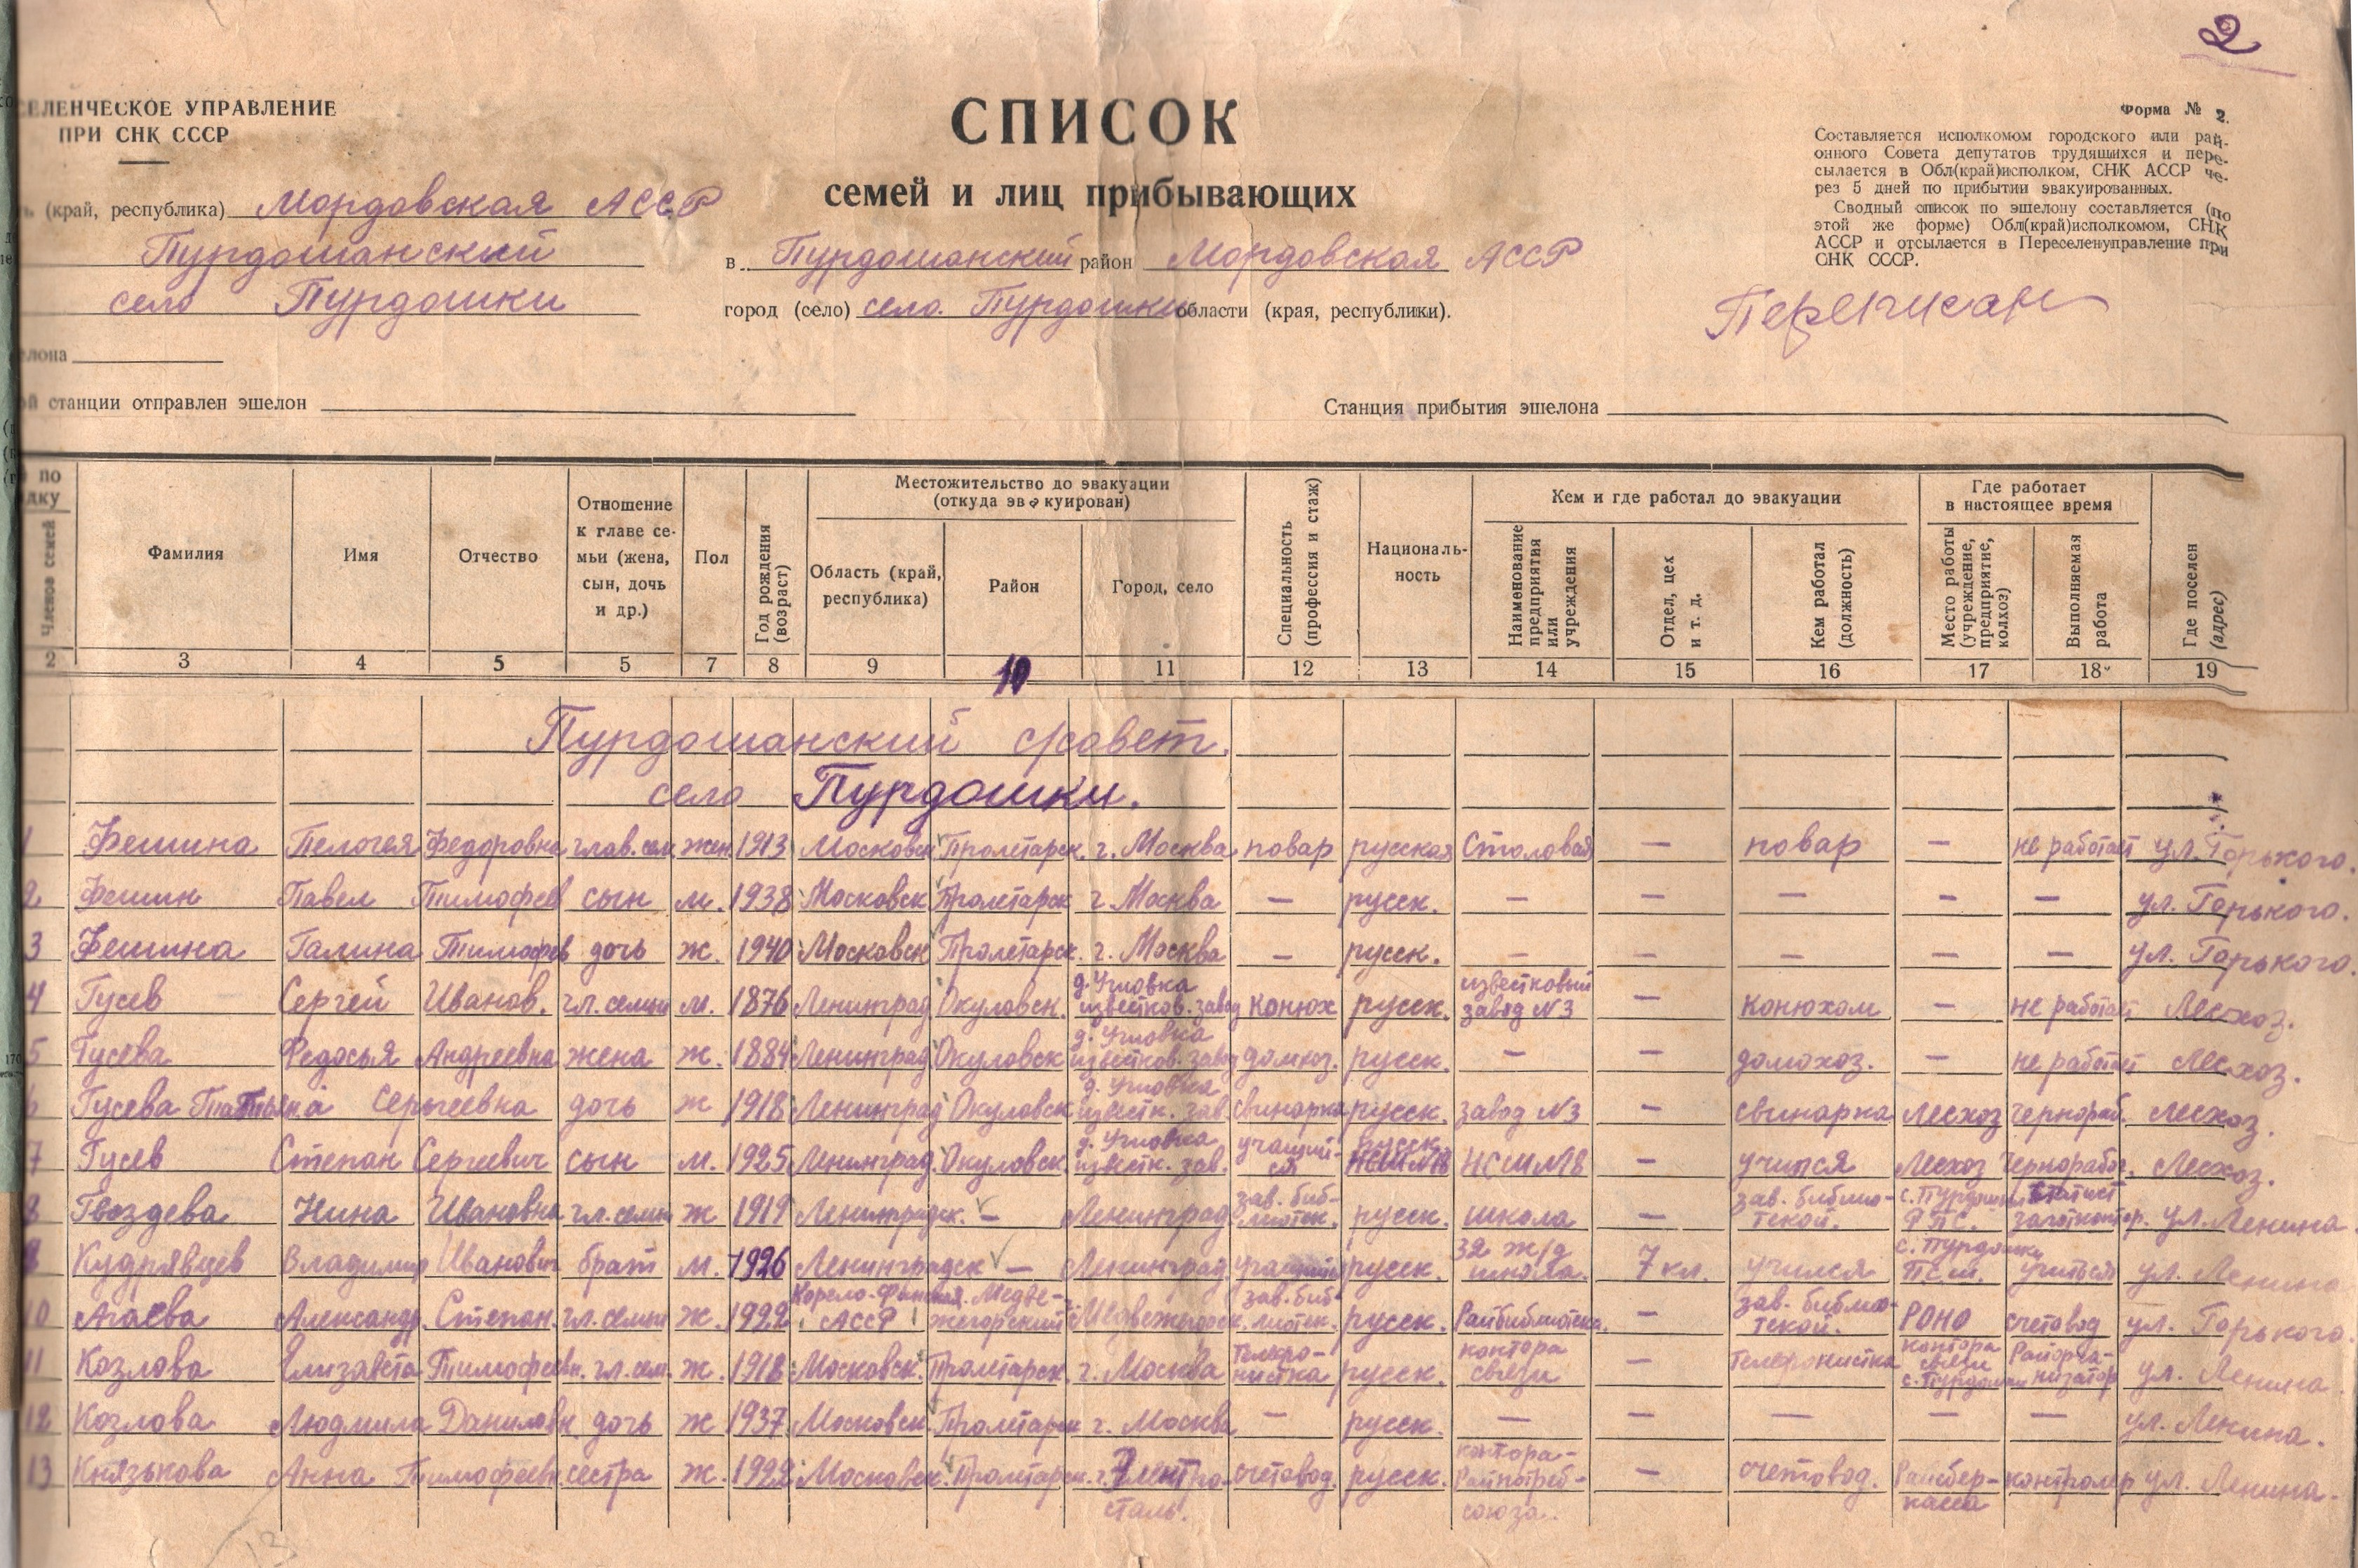 2
СЕЛЕНЧЕСКОЕ УПРАВЛЕНИЕ
ПРИ СНК СССР
СПИСОК
семей и лиц прибывающих
Форма № 2.
Составляется исполкомом городского или рай-
онного Совета депутатов трудящихся и пере-
сылается в Обл(край)исполком, СНК АССР че-
рез 5 дней по прибытии эвакуированных.
Сводный список по эшелону составляется (по
этой же форме) Обл(край)исполкомом, СНК
АССР и отсылается в Переселенуправление при
СНК СССР.
(край, республика) Мордовская АССР
Пурдошанский
село Пурдошки
в Пурдошанский район Мордовская АССР
город (село) село. Пурдошки области (края, республики).
Переписан
елона
ой станции отправлен эшелон
Станция прибытия эшелона
по
дку
Членов семей
Фамилия
Имя
Отчество
Отношение
к главе се-
мьи (жена,
сын, дочь
и др.)
Пол
Год рождения
(возраст)
Местожительство до эвакуации
(откуда эвакуирован)
Область (край,
республика)
Район
Город, село
Специальность
(профессия и стаж)
Националь-
ность
Кем и где работал до эвакуации
Наименование
предприятия
или
учреждения
Отдел, цех
и т. д.
Кем работал
(должность)
Где работает
в настоящее время
Место работы
(учреждение,
предприятие,
колхоз)
Выполняемая
работа
Где поселен
(адрес)
2 3 4 5 5 7 8 9 10 11 12 13 14 15 16 17 18 19
Пурдошанский с/совет.
село Пурдошки.
1 Фешина Пелогея Федоровна глав. сем жен. 1913 Московск Пролетарск. г. Москва повар русская Столовая — повар — не работает ул. Горького.
2 Фешин Павел Тимофеев сын м. 1938 Московск Пролетарск г. Москва — русск. — — — — — ул. Горького.
3 Фешина Галина Тимофеев дочь ж. 1940 Московск Пролетарск. г. Москва — русск. — — — — — ул. Горького.
4 Гусев Сергей Иванов. гл. семьи м. 1876 Ленинград Окуловск. д. Угловка известков. завод конюх русск. известковый завод №3 — конюхом — не работает Лесхоз.
5 Гусева Федосья Андреевна жена ж. 1884 Ленинград Окуловск д. Угловка известков. завод домхоз. русск. — — домохоз. — не работает Лесхоз.
6 Гусева Татьяна Сергеевна дочь ж 1918 Ленинград Окуловск д. Угловка известк. зав. свинарка русск. завод №3 — свинарка Лесхоз чернораб. Лесхоз.
7 Гусев Степан Сергеевич сын м. 1925 Ленинград. Окуловск д. Угловка известк. зав. учащий-ся русск НСШ №18 — учился Лесхоз Чернорабоч. Лесхоз.
8 Гвоздева Нина Ивановна гл. семьи ж 1919 Ленинградск. — Ленинград зав. биб-лиотек. русск. школа — зав. библио-текой. с. Пурдошки статист заготконтор. ул. Ленина.
9 Кудрявцев Владимир Иванович брат м. 1926 Ленинградск — Ленинград учащийся русск. 32 ж/д школа. 7 кл. учился с. Пурдошки учиться ул. Ленина
10 Агаева Александр. Степан. гл. семьи ж. 1922 Корело-Финская АССР Медве-жегорский Медвежегорск. зав. биб-лиотек. русск. Райбиблиотека. — зав. библио-текой. РОНО счетовод ул. Горького.
11 Козлова Елизавета Тимофеевн. гл. сем. ж. 1918 Московск. Пролетарск. г. Москва Телефо-нистка русск. контора связи — Телефонистка контора связи с. Пурдошки Райорга-низатор ул. Ленина.
12 Козлова Людмила Даниловн. дочь ж 1937 Московск. Пролетарск г. Москва — русск. — — — — — ул. Ленина.
13 Князькова Анна Тимофеевн. сестра ж. 1922 Московск. Пролетарск. г. Электро-сталь. счетовод. русск. контора-Райпотреб-союза. — счетовод. Райсбер-касса контролер ул. Ленина.